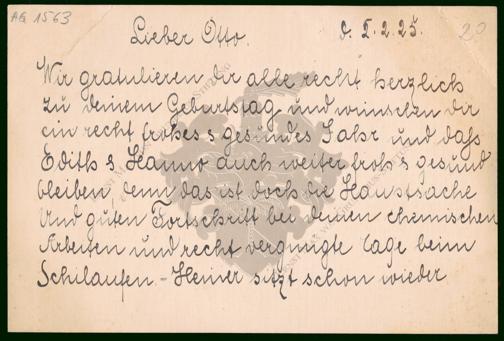 AG 1563
20
Lieber Otto. d. 5.2.25.
Wir gratulieren dir alle recht herzlich
zu deinem Geburtstag und wünschen dir
ein recht frohes & gesundes Jahr und dass
Edith & Hanno auch weiter froh & gesund
bleiben, denn das ist doch die Hauptsache
Und guten Fortschritt bei deinen chemischen
Arbeiten und recht vergnügte Tage beim
Schilaufen. - Heiner sitzt schon wieder